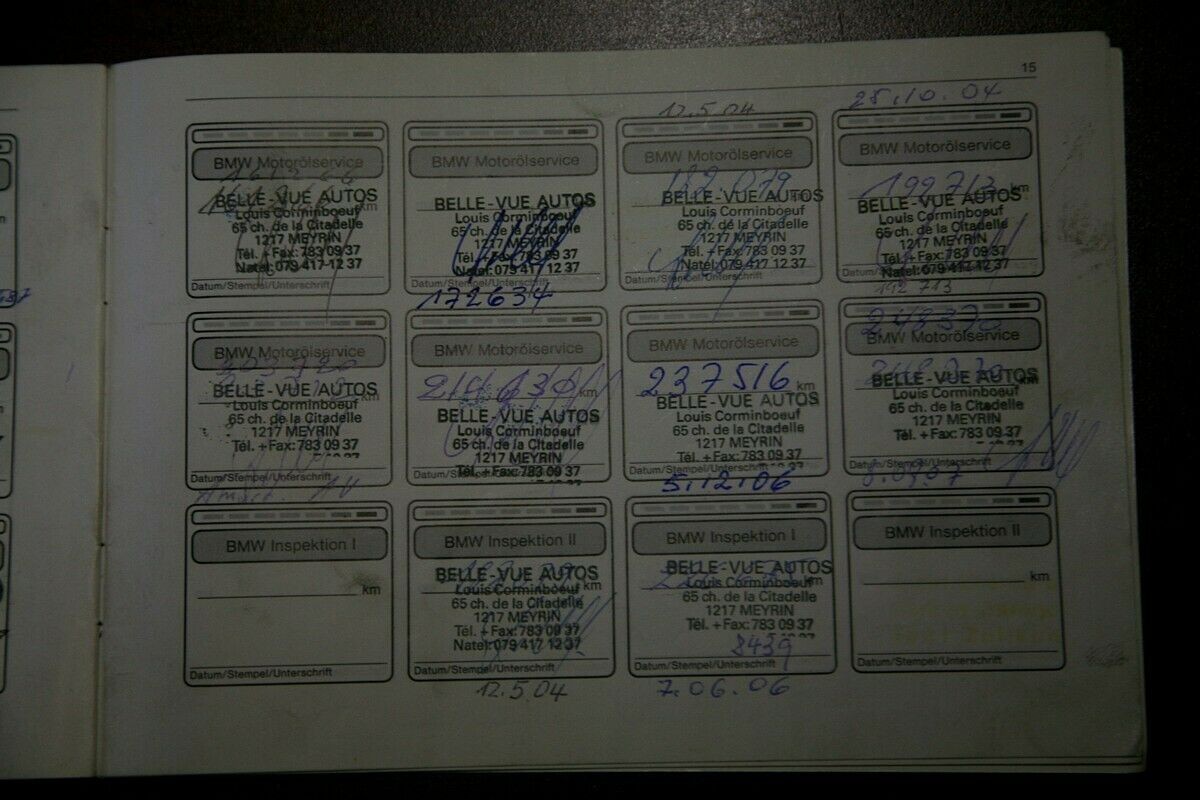 15
12.5.04
25.10.04
BMW Motorölservice
km
BELLE-VUE AUTOS
Louis Corminboeuf
65 ch. de la Citadelle
1217 MEYRIN
Tél. + Fax: 783 09 37
Natel: 079 417 12 37
Datum/Stempel/Unterschrift
BMW Motorölservice
BELLE-VUE AUTOS
Louis Corminboeuf
65 ch. de la Citadelle
1217 MEYRIN
Tél. + Fax: 783 09 37
Natel: 079 417 12 37
Datum/Stempel/Unterschrift
172634
BMW Motorölservice
km
BELLE-VUE AUTOS
Louis Corminboeuf
65 ch. de la Citadelle
1217 MEYRIN
Tél. + Fax: 783 09 37
Natel: 079 417 12 37
Datum/Stempel/Unterschrift
BMW Motorölservice
192713 km
BELLE-VUE AUTOS
Louis Corminboeuf
65 ch. de la Citadelle
1217 MEYRIN
Tél. + Fax: 783 09 37
Natel: 079 417 12 37
Datum/Stempel/Unterschrift
192 713
BMW Motorölservice
km
BELLE-VUE AUTOS
Louis Corminboeuf
65 ch. de la Citadelle
1217 MEYRIN
Tél. + Fax: 783 09 37
Datum/Stempel/Unterschrift
BMW Motorölservice
km
BELLE-VUE AUTOS
Louis Corminboeuf
65 ch. de la Citadelle
1217 MEYRIN
Tél. + Fax: 783 09 37
Datum/Stempel/Unterschrift
BMW Motorölservice
237516 km
BELLE-VUE AUTOS
Louis Corminboeuf
65 ch. de la Citadelle
1217 MEYRIN
Tél. + Fax: 783 09 37
Datum/Stempel/Unterschrift
5.12.06
248370
BMW Motorölservice
km
BELLE-VUE AUTOS
Louis Corminboeuf
65 ch. de la Citadelle
1217 MEYRIN
Tél. + Fax: 783 09 37
Datum/Stempel/Unterschrift
BMW Inspektion I
km
Datum/Stempel/Unterschrift
BMW Inspektion II
BELLE-VUE AUTOS
Louis Corminboeuf
65 ch. de la Citadelle
1217 MEYRIN
Tél. + Fax: 783 09 37
Natel: 079 417 12 37
Datum/Stempel/Unterschrift
12.5.04
BMW Inspektion I
km
BELLE-VUE AUTOS
Louis Corminboeuf
65 ch. de la Citadelle
1217 MEYRIN
Tél. + Fax: 783 09 37
8439
Datum/Stempel/Unterschrift
7.06.06
BMW Inspektion II
km
Datum/Stempel/Unterschrift